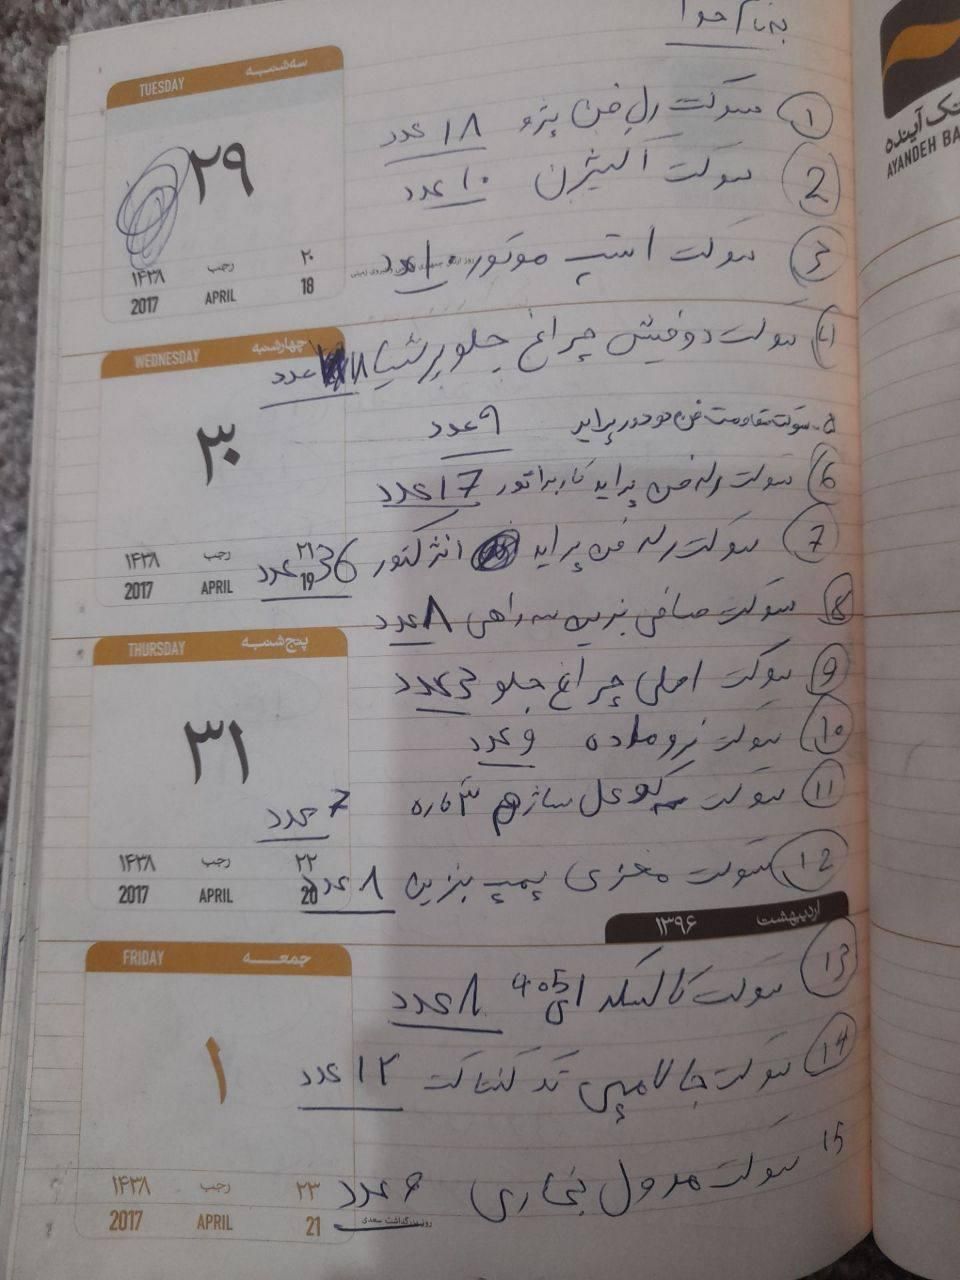 بنام خدا
① سوکت رله فن پژو ۱۸ عدد
② سوکت اکسیژن ۱۰ عدد
③ سوکت استپ موتور ۱۰ عدد
④ سوکت دو فیش چراغ جلو پرشیا ۱۸ عدد
۵- سوکت مقاومت فن دو دور پراید ۹ عدد
⑥ سوکت رله فن پراید کاربراتور 17 عدد
⑦ سوکت رله فن پراید انژکتور 36 عدد
⑧ سوکت صافی بنزین سه راهی ۸ عدد
⑨ سوکت اصلی چراغ جلو 3 عدد
⑩ سوکت نر و ماده و عدد
⑪ سوکت کوئل ساژم ۳ تاره
7 عدد
⑫ سوکت مخزی پمپ بنزین ۸ عدد
⑬ سوکت کالسکه ای 405 ۸ عدد
⑭ سوکت جا لامپی تک کنتاکت ۱۲ عدد
15 سوکت مدول بخاری ۶ عدد
TUESDAY سه‌شنبه
۲۹
۱۴۳۸ رجب ۲۰
2017 APRIL 18
WEDNESDAY چهارشنبه
۳۰
۱۴۳۸ رجب ۲۱
2017 APRIL 19
THURSDAY پنج‌شنبه
۳۱
۱۴۳۸ رجب ۲۲
2017 APRIL 20
اردیبهشت ۱۳۹۶
FRIDAY جمعه
۱
۱۴۳۸ رجب ۲۳
2017 APRIL 21
روز بزرگداشت سعدی
آینده
AYANDEH BA